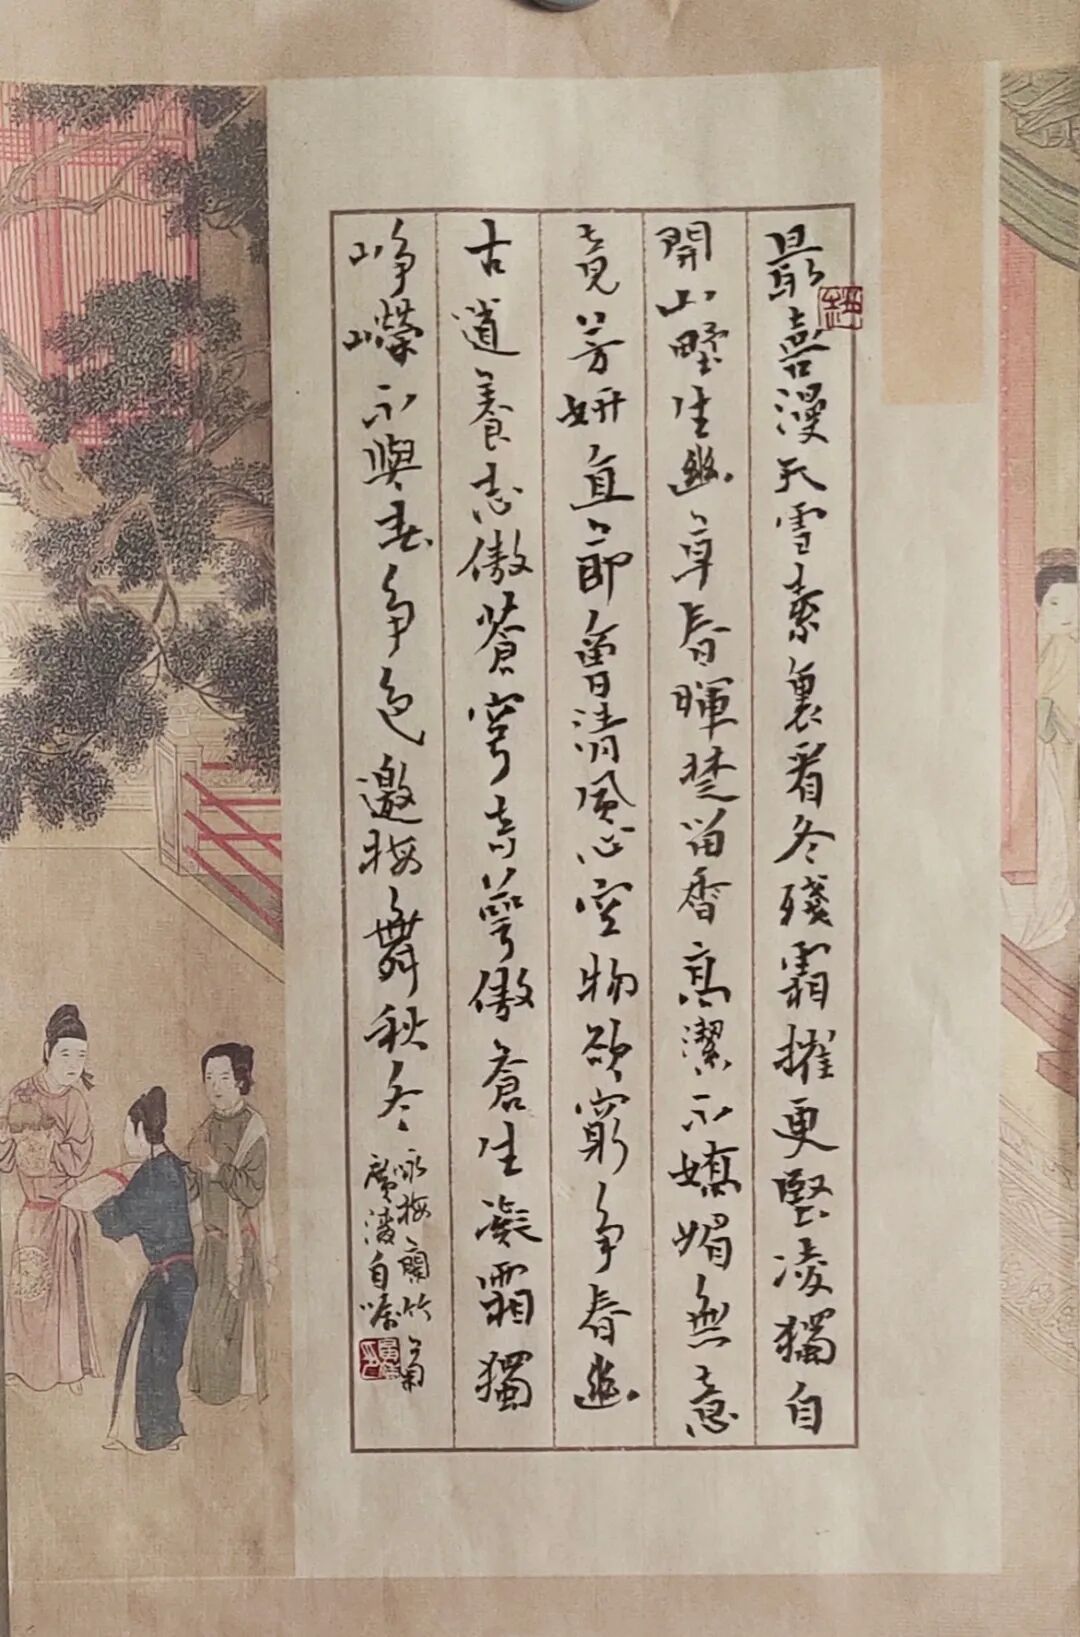 最喜漫天雪素裹看冬殘霜摧更堅凌獨自
開山野生幽草春暉楚留香高潔不媚無意
竞芳妍直節清風心空物欲窮争春幽
古道養志傲蒼穹萼傲蒼生凝霜獨
崢嶸不與春争色邀梅舞秋冬
詠梅蘭竹菊
廣凌自